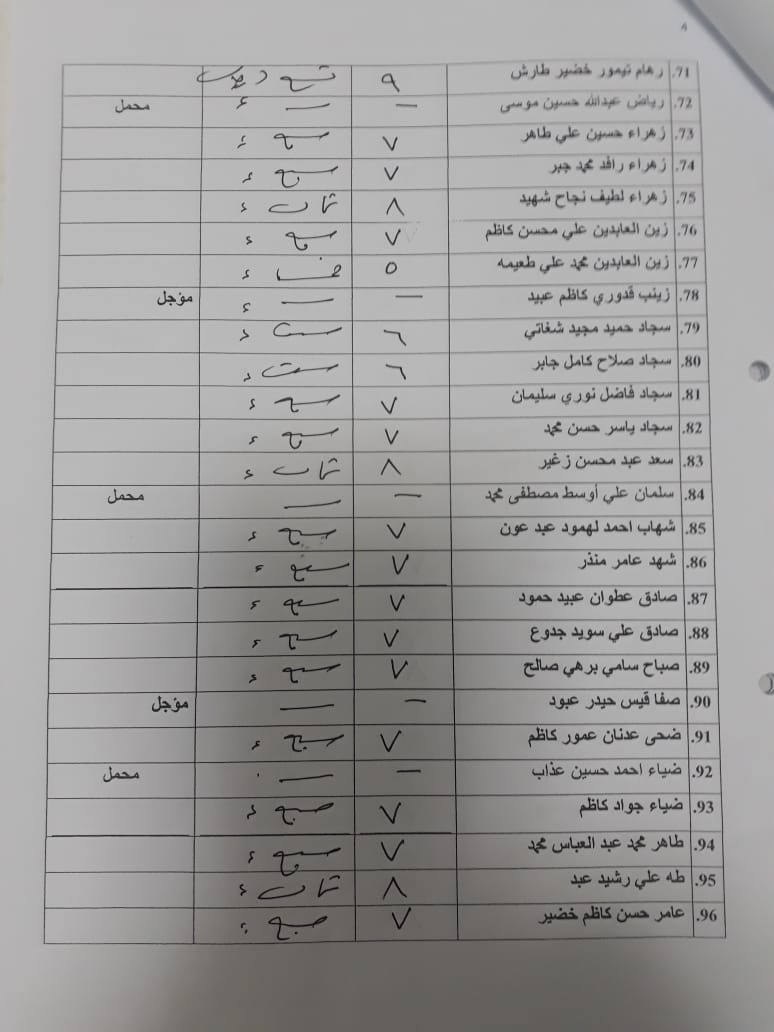 ٤
71. رهام تيمور خضير طارش ٩ تسع درجات
72. رياض عبدالله حسين موسى — — ء محمل
73. زهراء حسين علي طاهر ٧ سبع ء
74. زهراء رافد محمد جبر ٧ سبع ء
75. زهراء لطيف نجاح شهيد ٨ ثمان ء
76. زين العابدين علي محسن كاظم ٧ سبع ء
77. زين العابدين محمد علي طعيمه ٥ خمس ء
78. زينب قدوري كاظم عبيد — — ء مؤجل
79. سجاد حميد مجيد شغاتي ٦ ست ء
80. سجاد صلاح كامل جابر ٦ ست ء
81. سجاد فاضل نوري سليمان ٧ سبع ء
82. سجاد ياسر حسن محمد ٧ سبع ء
83. سعد عبد محسن زغير ٨ ثمان ء
84. سلمان علي أوسط مصطفى محمد — — محمل
85. شهاب احمد لهمود عبد عون ٧ سبع ء
86. شهد عامر منذر ٧ سبع ء
87. صادق عطوان عبيد حمود ٧ سبع ء
88. صادق علي سويد جدوع ٧ سبع ء
89. صباح سامي برهي صالح ٧ سبع ء
90. صفا قيس حيدر عبود — — مؤجل
91. ضحى عدنان عمور كاظم ٧ سبع ء
92. ضياء احمد حسين عذاب — — محمل
93. ضياء جواد كاظم ٧ سبع ء
94. طاهر محمد عبد العباس محمد ٧ سبع ء
95. طه علي رشيد عبد ٨ ثمان ء
96. عامر حسن كاظم خضير ٧ سبع ء